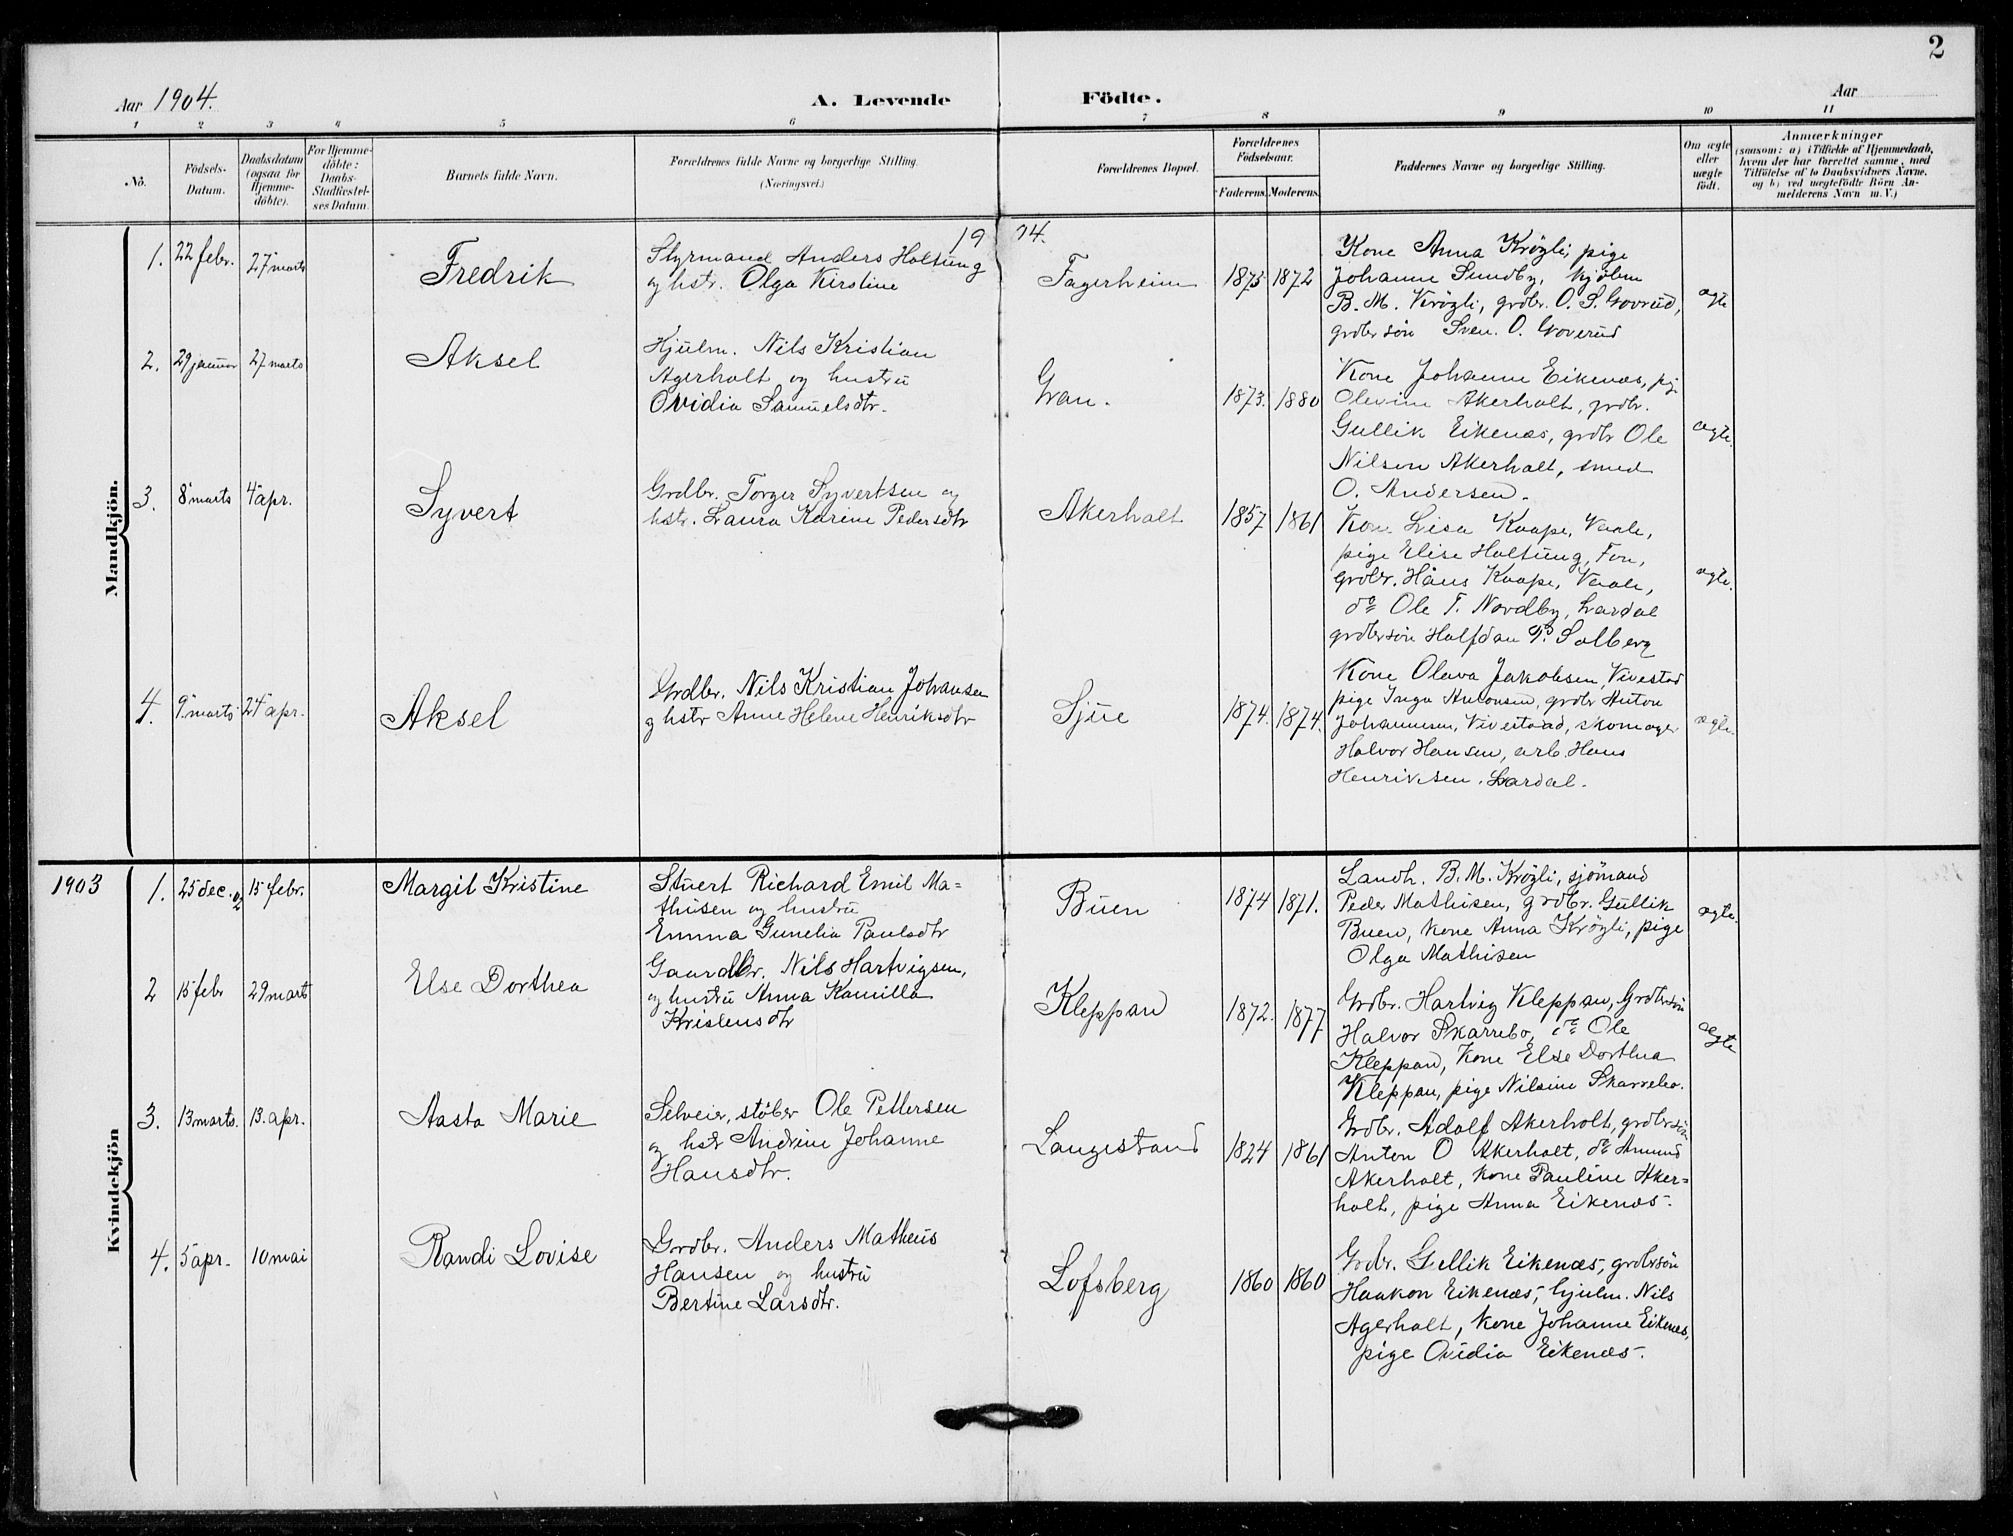 2
Aar 1904.
A. Levende Födte.
Aar
1 2 3 4 5 6 7 8 9 10 11
No.
Födsels-
Datum.
Daabsdatum
(ogsaa for
Hjemme-
döbte).
For Hjemme-
döbte:
Daabs-
Stadfæstel-
ses Datum.
Barnets fulde Navn.
Forældrenes fulde Navne og borgerlige Stilling.
(Næringsvei.)
Forældrenes Bopæl.
Forældrenes
Födselsaar.
Faderens. Moderens.
Faddernes Navne og borgerlige Stilling.
Om ægte
eller
uægte
født.
Anmærkninger
(saasom: a) i Tilfælde af Hjemmedaab,
hvem der har forrettet samme, med
Tilföielse af to Daabsvidners Navne,
og b) ved uægtefödte Börn An-
melderens Navn m.V.)
Mandkjön.
19 04.
1. 22 febr. 27 marts
Fredrik
Styrmand Anders Holtung
og hstr. Olga Kirstine
Fagerheim
1875 1872
Kone Anna Krøgli, pige
Johanne Sundby, kjøbm
B. M. Krøgli, grdbr. O. S. Goverud,
grdbrsøn Sven. O. Goverud
ægte
2. 29 januar 27 marts
Aksel
Hjulm. Nils Kristian
Agerholt og hustru
Ovidia Samuelsdtr.
Gran.
1873. 1880
Kone Johanne Eikenæs, pig
Olevine Akerholt, grdbr.
Gullik Eikenæs, grdbr Ole
Nilsen Akerholt, smed
O. Andersen.
ægte.
3. 8 marts 4 apr.
Syvert
Grdbr. Torger Syvertsen og
hstr. Laura Karine Pedersdtr
Akerholt
1857 1861
Kone Lisa Kaape, Vaale,
pige Elise Holtung, Fon,
grdbr. Hans Kaape, Vaale,
do Ole T. Nordby, Lardal
grdbrsøn Halfdan P. Solberg
ægte.
4. 9 marts 24 apr.
Aksel
Grdbr. Nils Kristian Johansen
og hstr Anne Helene Henriksdtr
Sjue
1874. 1874.
Kone Olava Jakobsen, Vivestad
pige Inga Antonsen, grdbr Anton
Johannesen, Vivestad, skomager
Halvor Hansen, arb. Hans
Henriksen. Lardal.
ægte.
1903
Kvindekjön
1. 25 dec. 02 15 febr.
Margit Kristine
Stuert Richard Emil Ma=
thisen og hustru
Emma Gunelia Paulsdtr
Buen
1874 1871.
Landh. B. M. Krøgli, sjømand
Peder Mathisen, grdbr. Gullik
Buen, kone Anna Krøgli, pige
Olga Mathisen
ægte.
2 15 febr 29 marts
Else Dorthea
Gaardbr. Nils Hartvigsen,
og hustru Anna Kamilla
Kristensdtr
Kleppan
1872. 1877
Grdbr. Hartvig Kleppan, Grdbrsøn
Halvor Skarrebo, do Ole
Kleppan, kone Else Dorthea
Kleppan, pige Nilsine Skarrebo.
ægte
3. 13 marts. 13. apr.
Aasta Marie
Selveier, støber Ole Pettersen
og hstr Andrine Johanne
Hansdtr.
Langestrand
1824 1861
Grdbr. Adolf Akerholt, grdbrsøn
Anton O Akerholt, do Amund
Akerholt, kone Pauline Aker=
holt, pige Anna Eikenæs.
4. 5 apr. 10 mai
Randi Lovise
Grdbr. Anders Matheus
Hansen og hustru
Bertine Larsdtr.
Lofsberg
1860 1860
Grdbr. Gullik Eikenæs, grdbrsøn
Haakon Eikenæs, hjulm. Nils
Agerholt, kone Johanne Eikenæs,
pige Ovidia Eikenæs.